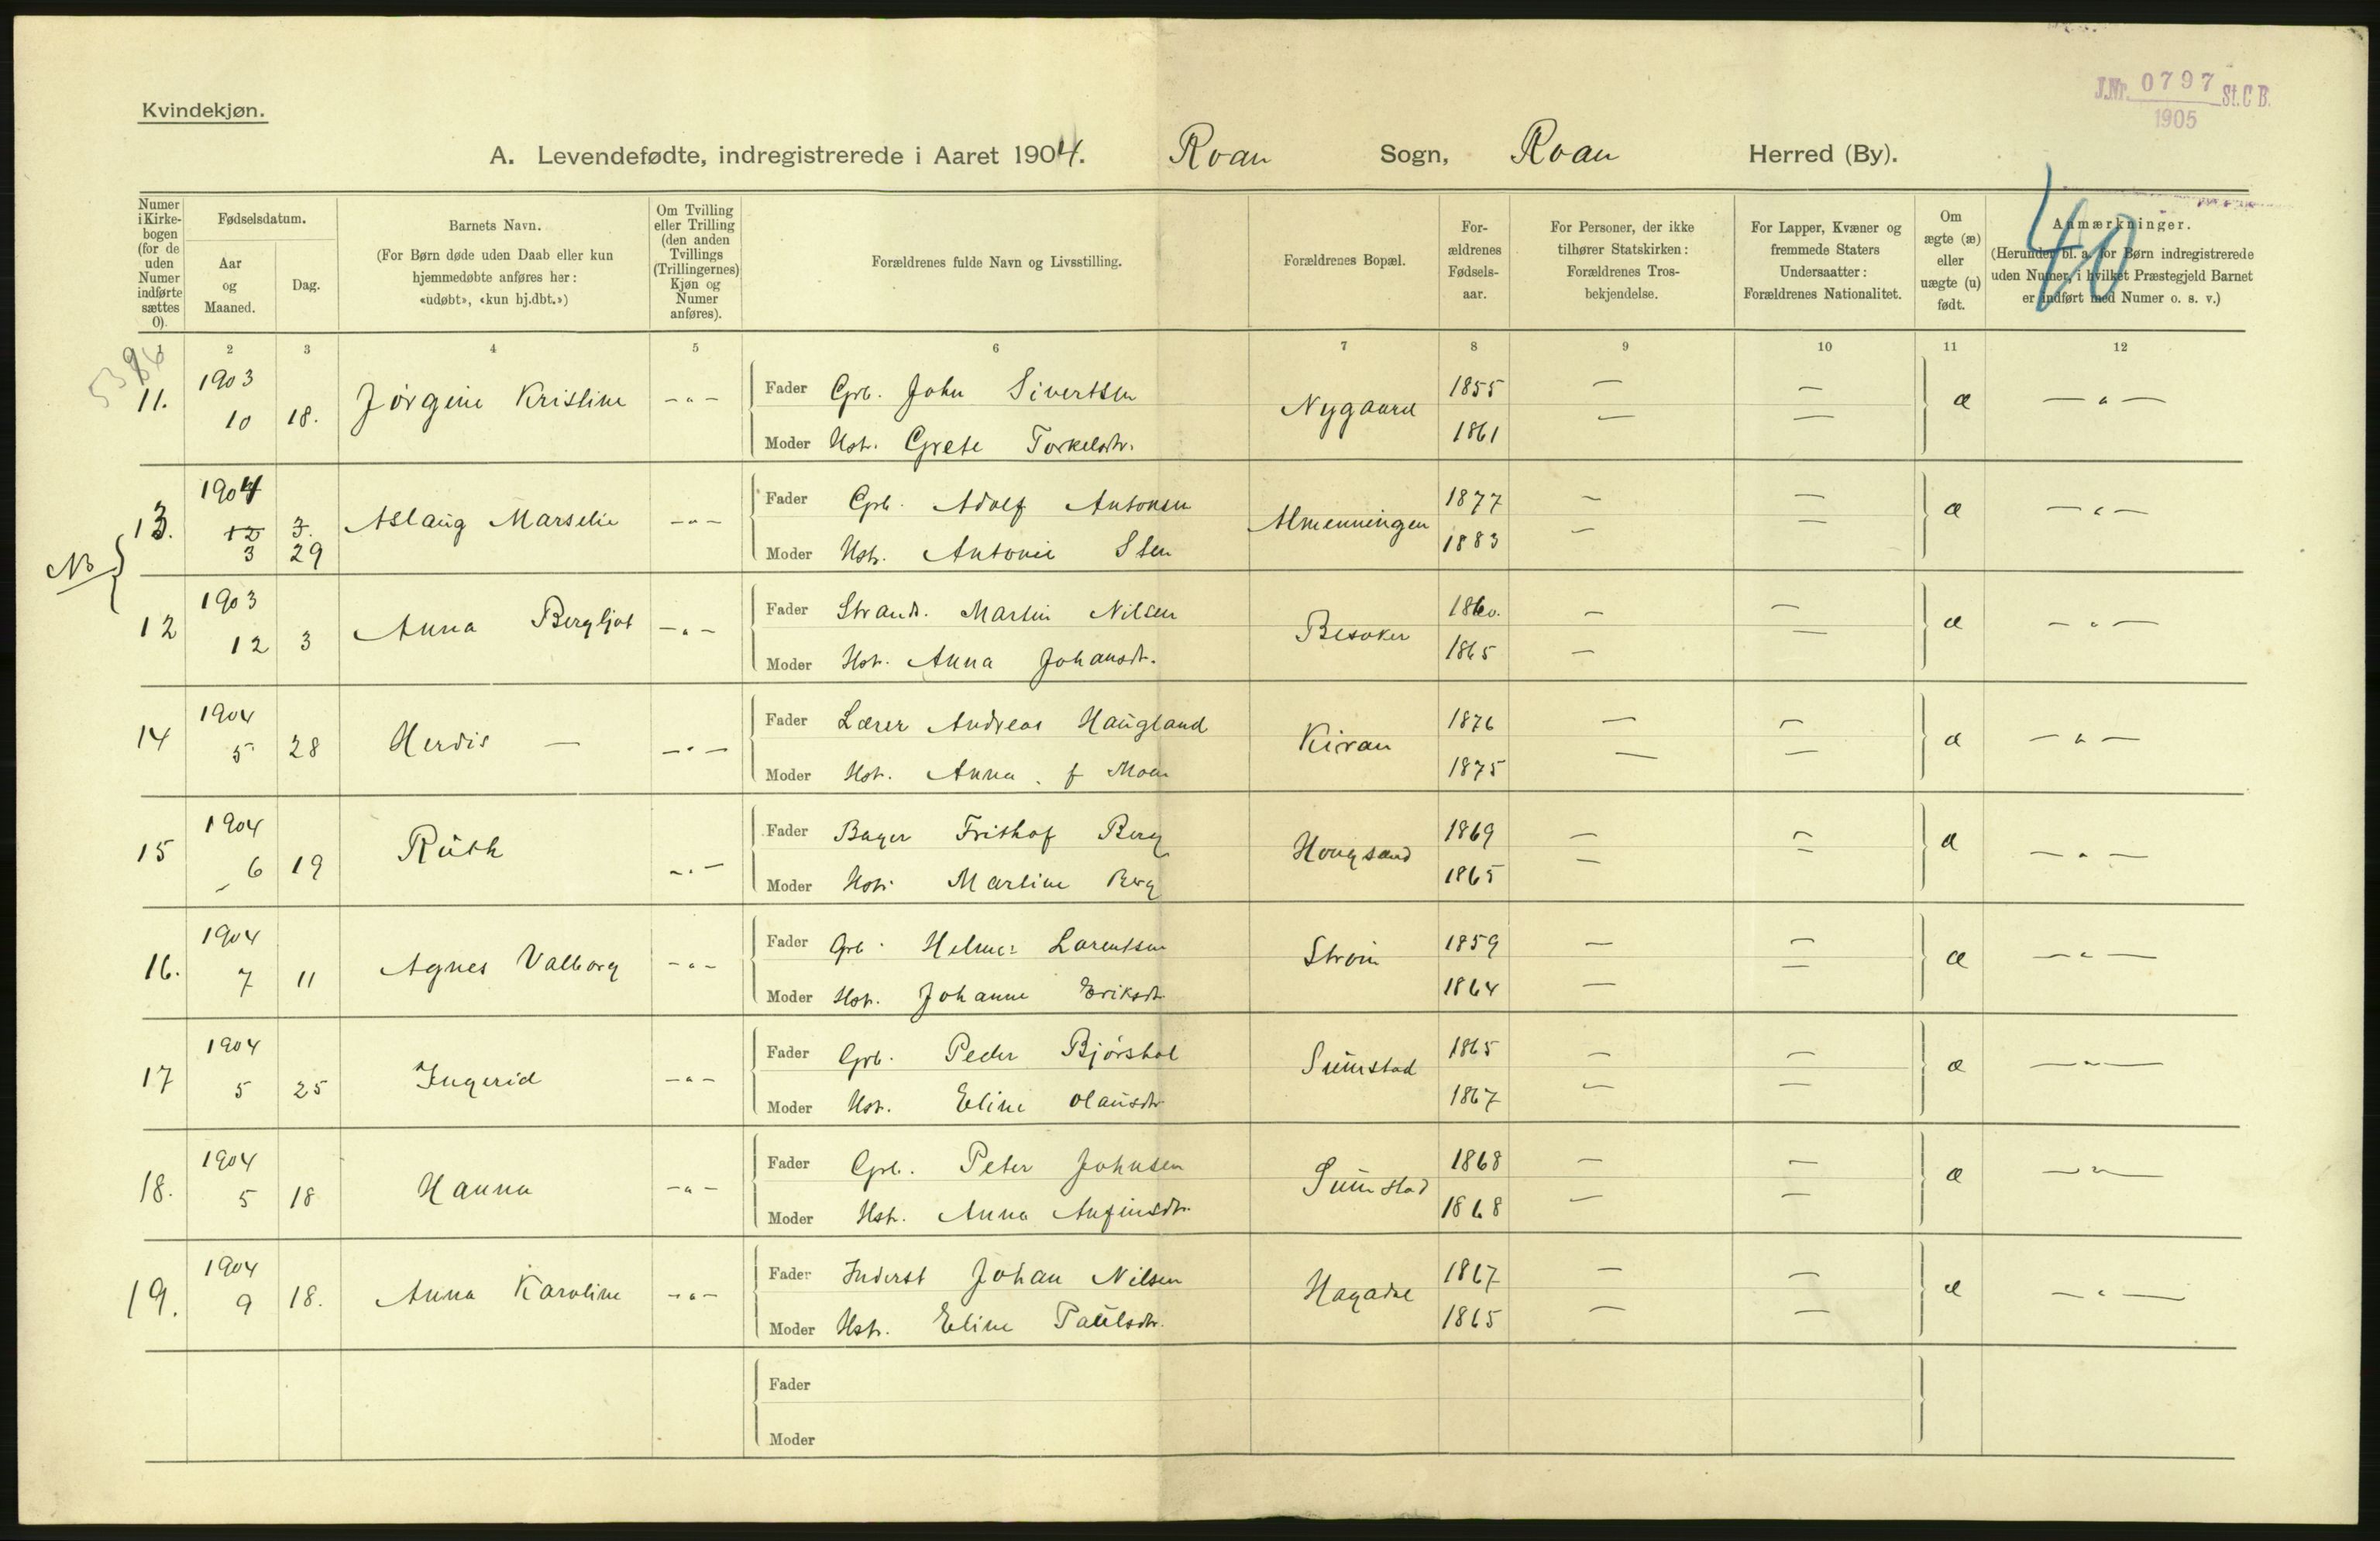 J.Nr. 0797 St.C B.
1905
Kvindekjøn.
A. Levendefødte, indregistrerede i Aaret 1904. Roan Sogn, Roan Herred (By).
40
Numer i Kirkebogen (for de uden Numer indførte sættes 0).
Fødselsdatum.
Aar og Maaned.
Dag.
Barnets Navn.
(For Børn døde uden Daab eller kun hjemmedøbte anføres her: «udøbt», «kun hj.dbt.»)
Om Tvilling eller Trilling (den anden Tvillings (Trillingernes) Kjøn og Numer anføres).
Forældrenes fulde Navn og Livsstilling.
Forældrenes Bopæl.
Forældrenes Fødselsaar.
For Personer, der ikke tilhører Statskirken: Forældrenes Trosbekjendelse.
For Lapper, Kvæner og fremmede Staters Undersaatter: Forældrenes Nationalitet.
Om ægte (æ) eller uægte (u) født.
Anmærkninger.
(Herunder bl. a. for Børn indregistrerede uden Numer, i hvilket Præstegjeld Barnet er indført med Numer o. s. v.)
1 2 3 4 5 6 7 8 9 10 11 12
11. 1903 10 18. Jörgine Kristine -„- Fader Grb. John Sivertsen Nygaard 1855 — — æ —„—
Moder Hst. Grete Torkelsdtr. 1861 — —
13. 1904 12 3. Aslaug Marselie -„- Fader Grb. Adolf Antonsen Almenningen 1877 — — æ —„—
3 29 Moder Hst. Antonie Sten 1883 — —
NB
12 1903 12 3 Anna Bergljot -„- Fader Strands. Martin Nilsen Besaker 1860. — — æ —„—
Moder Hst. Anna Johansdt. 1865 — —
14 1904 5 28 Herdis — —„— Fader Lærer Andreas Haugland Kiran 1876 — — æ —„—
Moder Hst. Anna. f Moen 1875 — —
15 1904 6 19 Ruth -„- Fader Bager Frithof Berg Hongsand 1869 — — æ —„—
Moder Hst. Martine Berg 1865 — —
16. 1904 7 11 Agnes Valborg -„- Fader Grb. Helmer Lorentsen Strøm 1859 — — æ —„—
Moder Hst. Johanne Eriksdtr 1864 — —
17 1904 5 25 Ingerid -„- Fader Grb. Peder Bjørshol Sumstad 1865 — — æ —„—
Moder Hst. Eline Olausdtr 1867 — —
18. 1904 5 18 Hanna -„- Fader Grb. Peter Johnsen Sumstad 1868 — — æ —„—
Moder Hst. Anna Anfinsdtr. 1868 — —
19. 1904 9 18. Anna Karoline -„- Fader Inderst Johan Nilsen 1867 — — æ —„—
Moder Hst. Eline Paulsdtr. 1865 — —
Fader
Moder